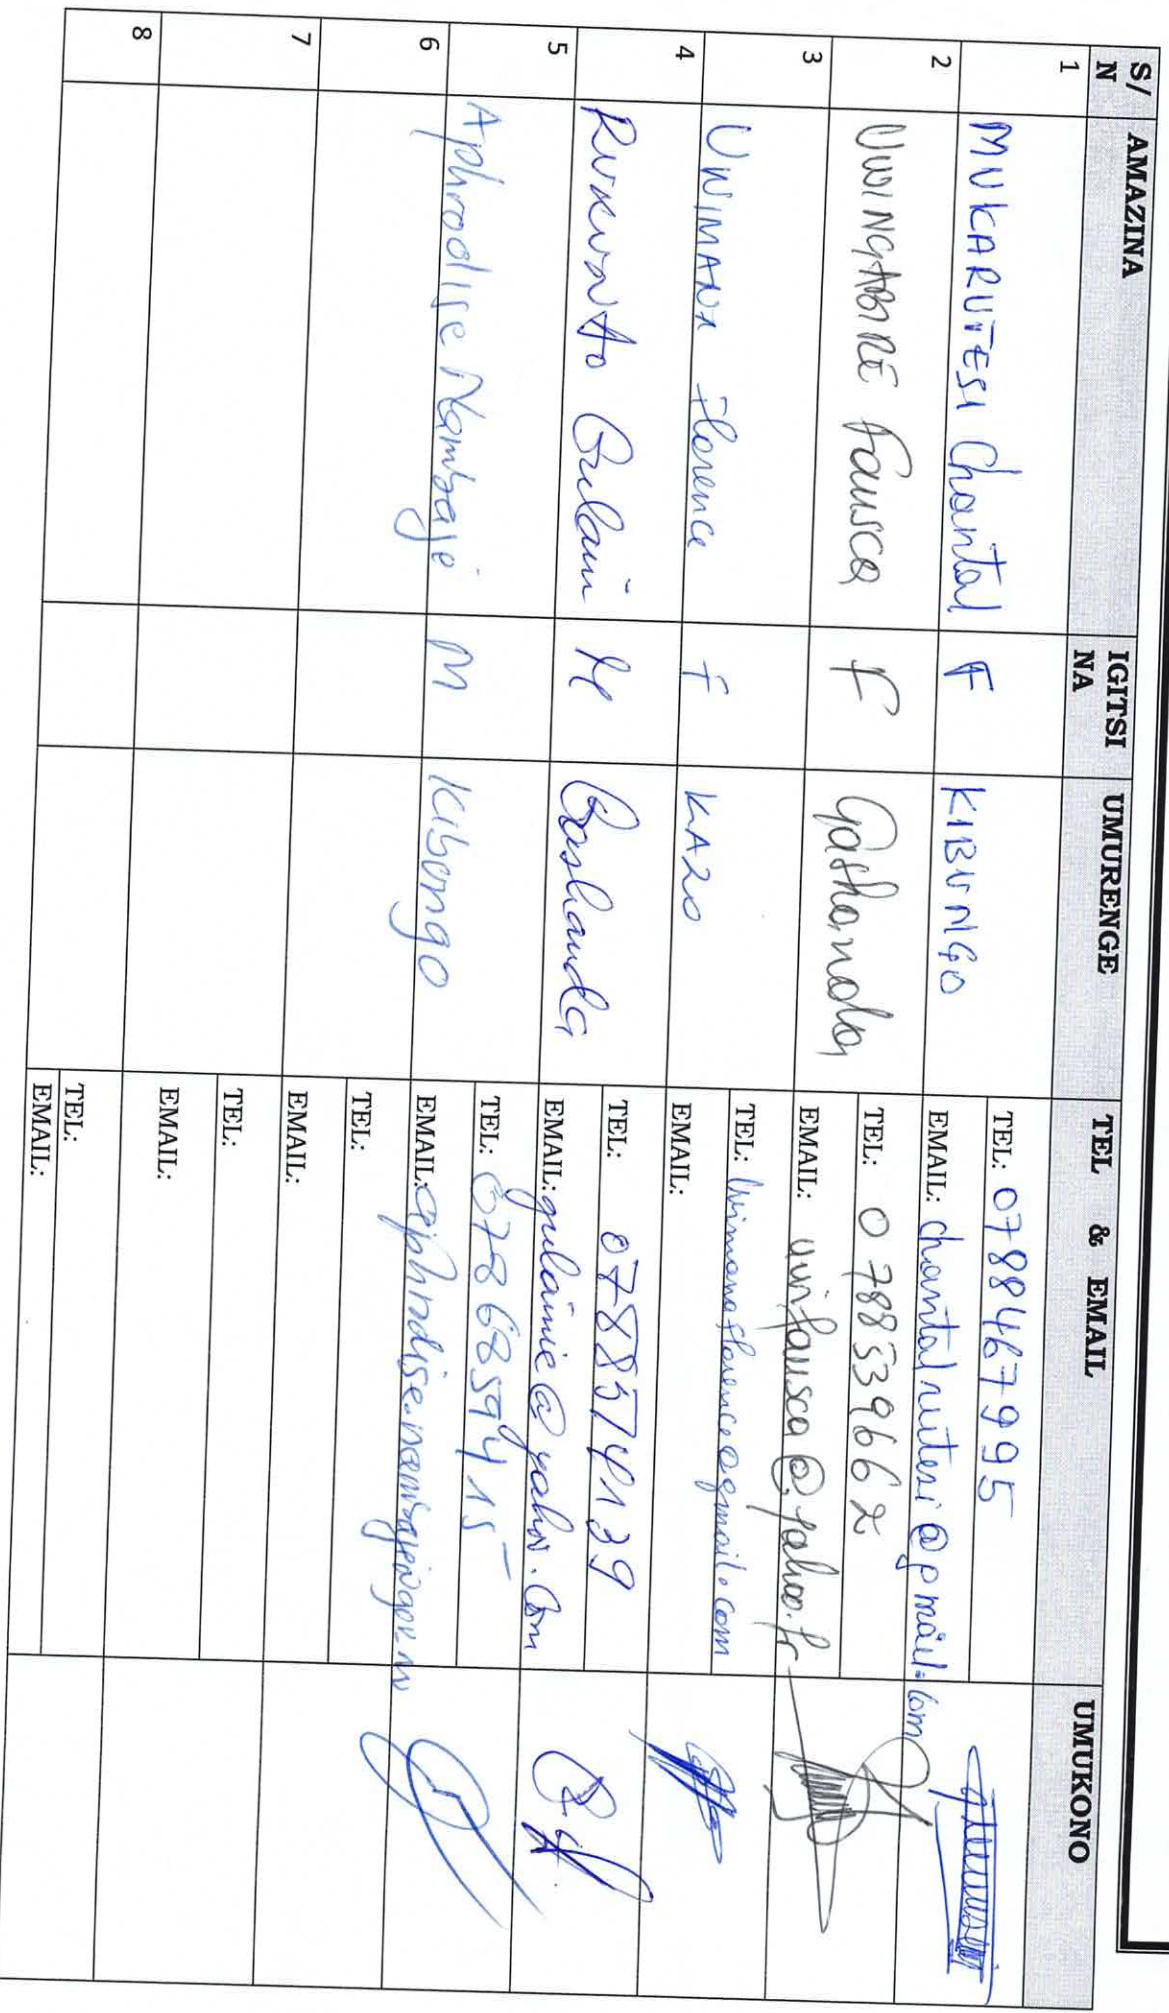 S/N AMAZINA IGITSINA UMURENGE TEL & EMAIL UMUKONO
1 MUKARUTESI Chantal F KIBUNGO TEL: 0788467995
EMAIL: chantalrutesi@gmail.com
2 UWINGABIRE Fausca F Gashanda TEL: 0788539662
EMAIL: uwifausca@yahoo.fr
3 UWIMANA Florence F KAZO TEL: Uwimanaflorence@gmail.com
EMAIL:
4 Gulain M Gashanda TEL: 0788574139
EMAIL: gulainie@yahoo.com
5 Aphrodise Nambaje M Kibongo TEL: 0786859415
EMAIL: aphrodise.nambaje@
6 TEL:
EMAIL:
7 TEL:
EMAIL:
8 TEL:
EMAIL: